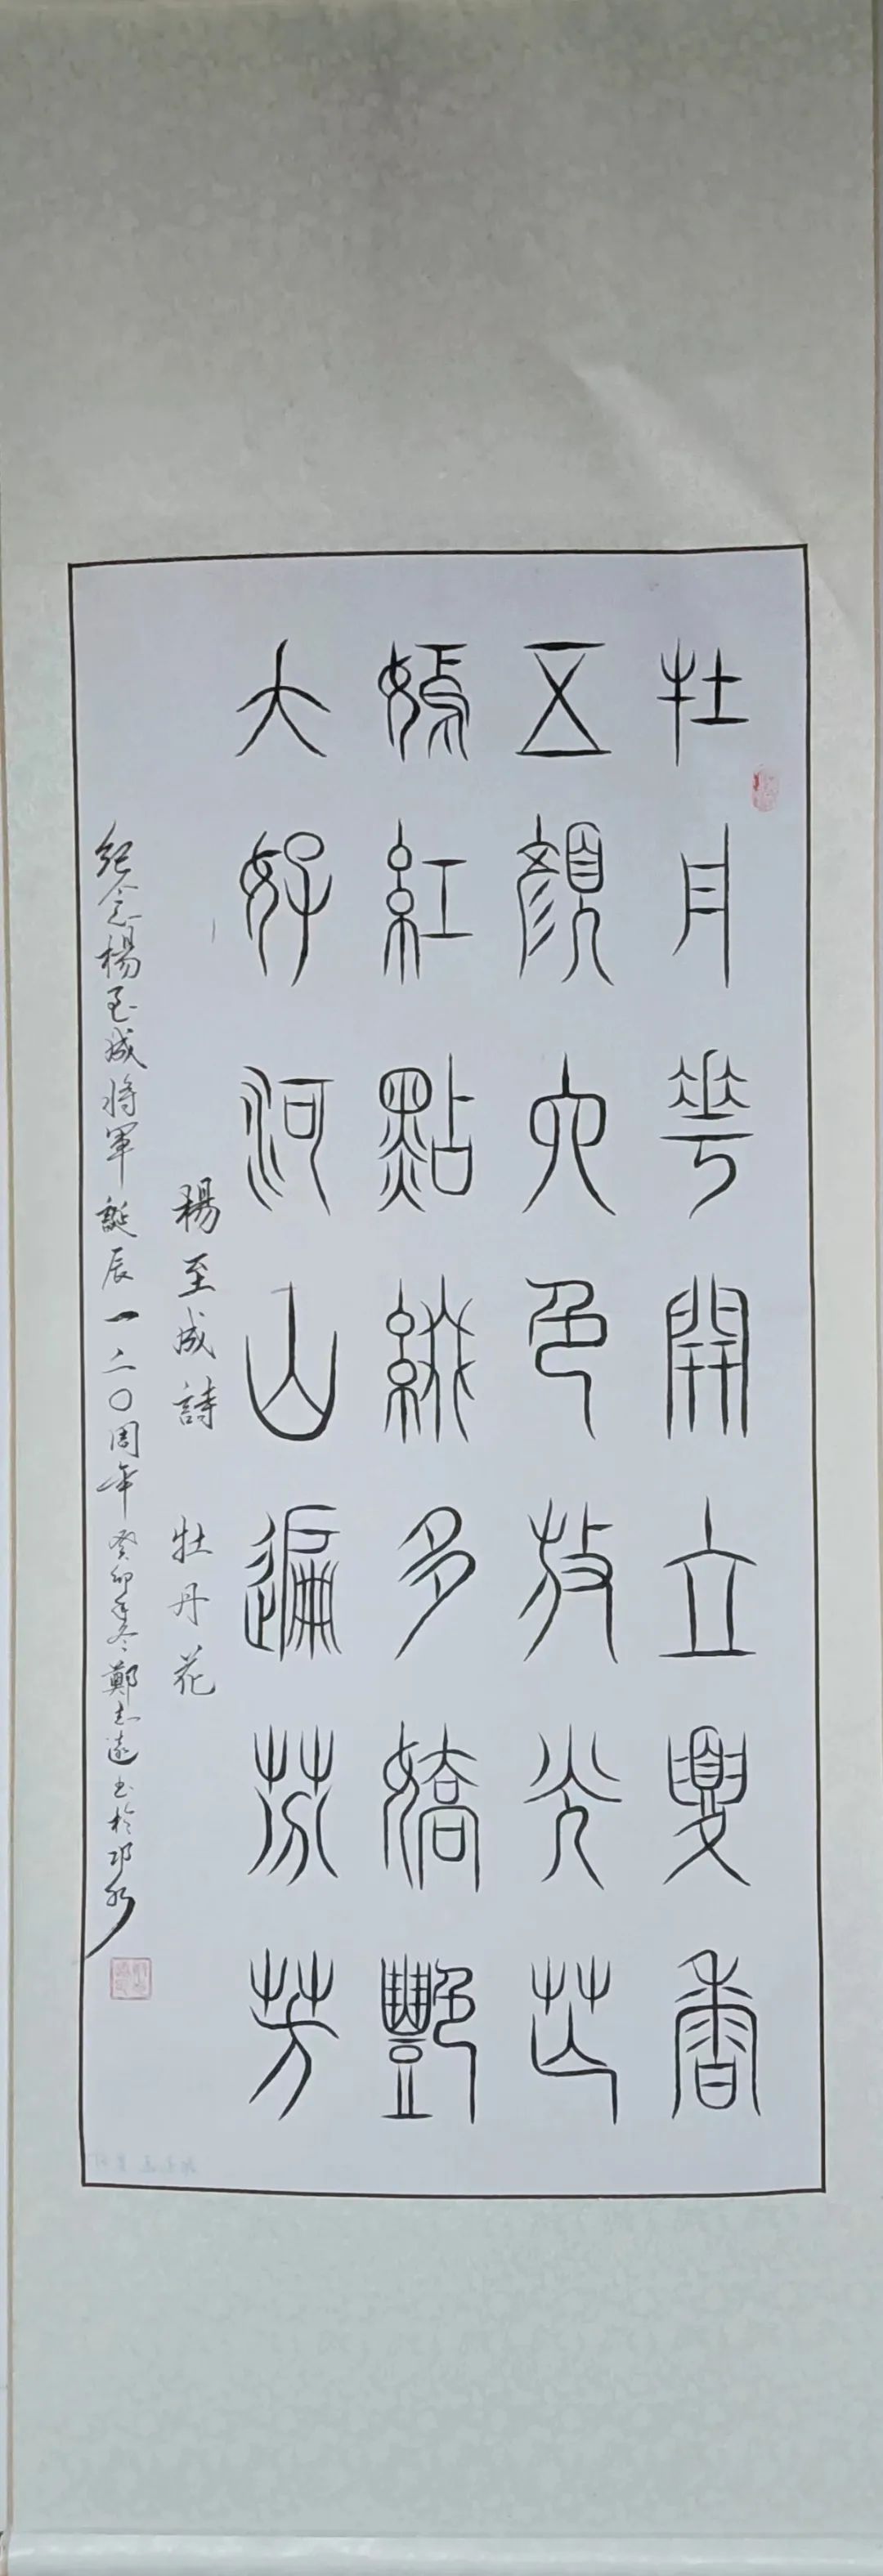 牡丹華開立夏香
五顏六色放光芒
嫣紅點綴多嬌艷
大好河山遍芬芳
楊至成詩 牡丹花
紀念楊至成將軍誕辰一二〇周年 癸卯年冬 鄭志遠書於邛水